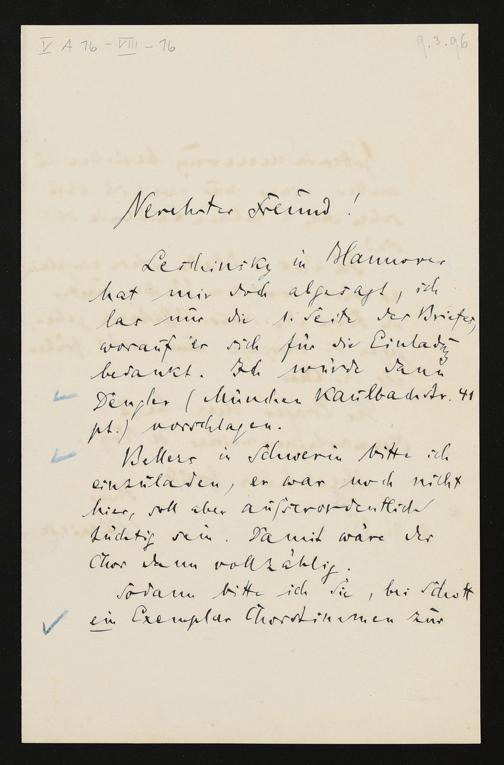 V A 76 - VIII - 76
9.3.96
Verehrter Freund!
in Hannover
hat mir doch abgesagt, ich
las nur die 1. Seite des Briefes,
worauf er sich für die Einladung
bedankt. Ich würde dann
Dengler (München Kaulbachstr. 41
pt.) vorschlagen.
in Schwerin bitte ich
einzuladen, er war noch nicht
hier, soll aber außerordentlich
tüchtig sein. Damit wäre der
Chor denn vollzählig.
Sodann bitte ich Sie, bei Schott
ein Exemplar Chorstimmen zur